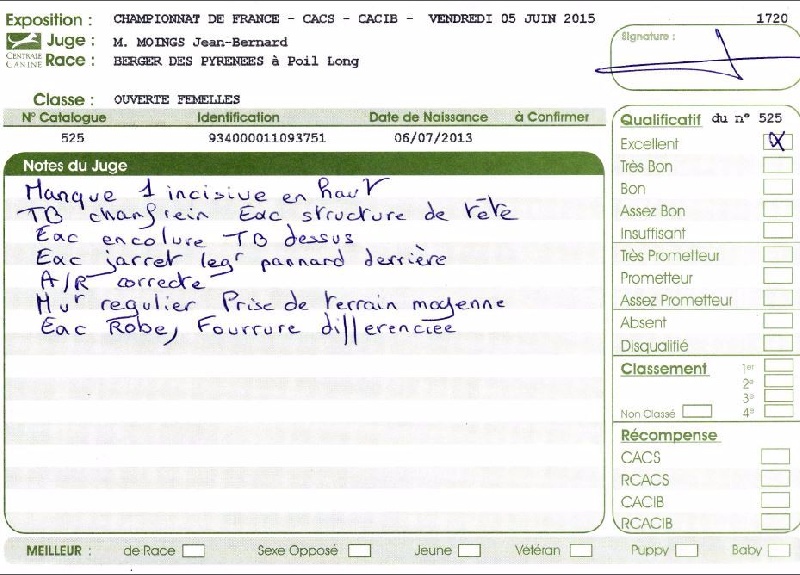 Exposition : CHAMPIONNAT DE FRANCE - CACS - CACIB - VENDREDI 05 JUIN 2015 1720
Juge : M. MOINGS Jean-Bernard
Signature :
CENTRALE CANINE
Race : BERGER DES PYRENEES à Poil Long
Classe : OUVERTE FEMELLES
N° Catalogue Identification Date de Naissance à Confirmer
525 934000011093751 06/07/2013
Notes du Juge
Manque 1 incisive en haut
TB chanfrein Exc structure de tête
Exc encolure TB dessus
Exc jarret legt pannard derrière
A/R correcte
Mvt regulier Prise de terrain moyenne
Exc Robe, Fourrure differenciee
Qualificatif du n° 525
Excellent X
Très Bon
Bon
Assez Bon
Insuffisant
Très Prometteur
Prometteur
Assez Prometteur
Absent
Disqualifié
Classement 1er
2e
3e
Non Classé 4e
Récompense
CACS
RCACS
CACIB
RCACIB
MEILLEUR : de Race Sexe Opposé Jeune Vétéran Puppy Baby